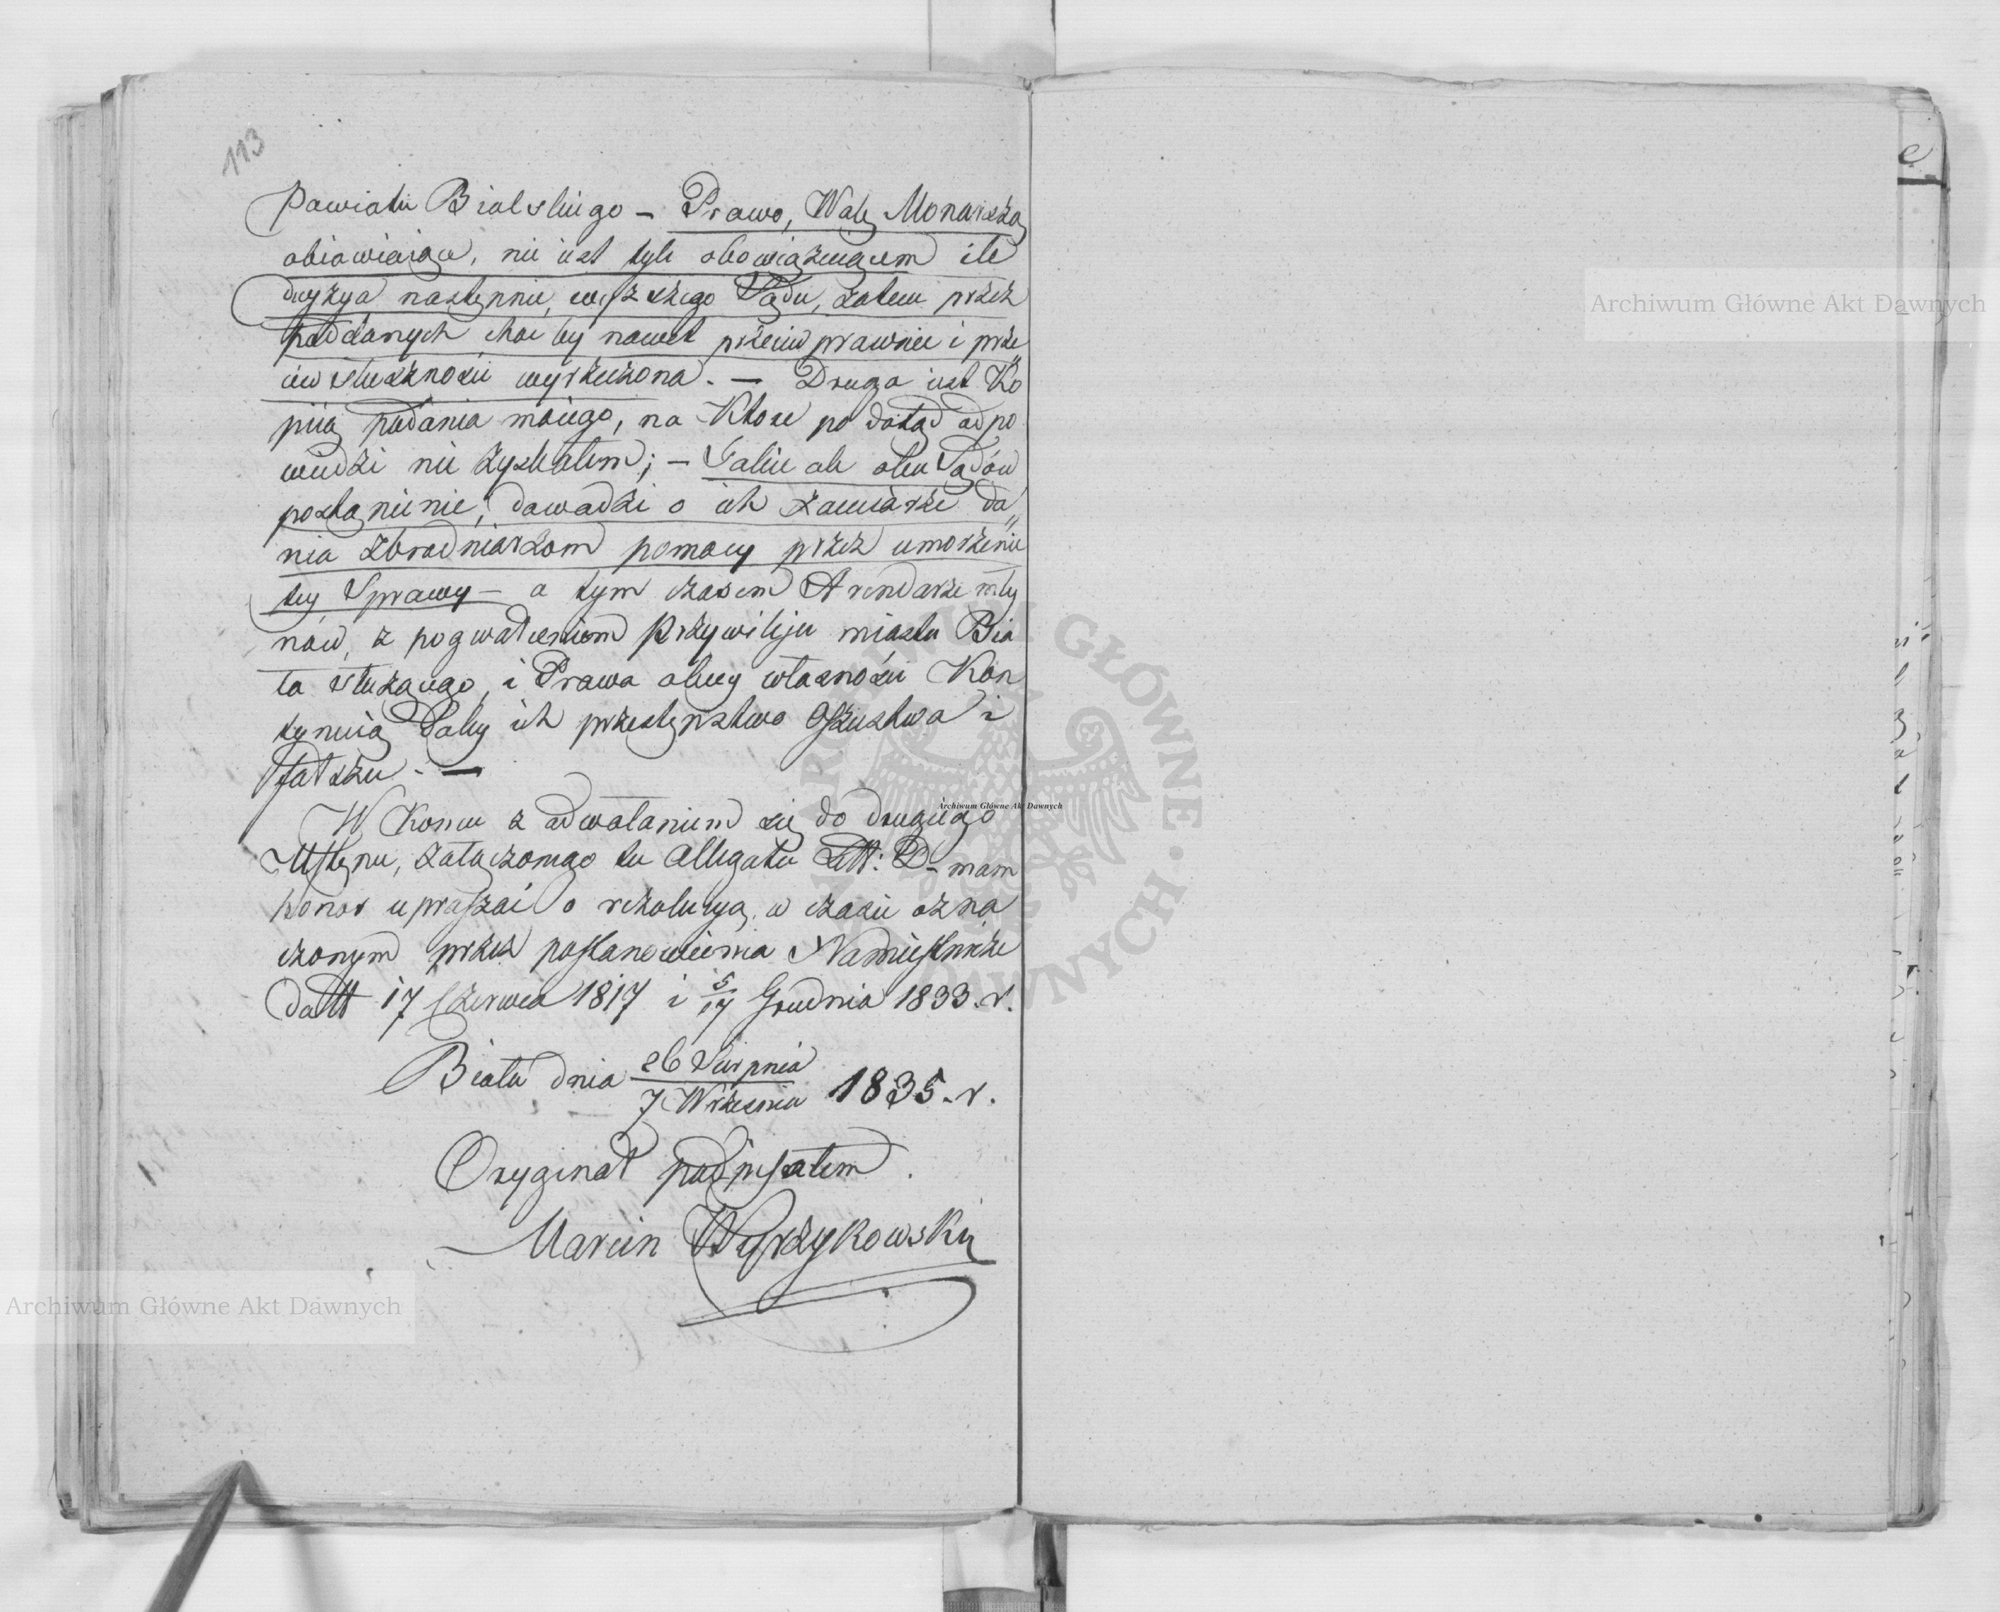 113
Powiatu Bialskiego – Prawo, Wolę Monarszą
obiawiaiące, nie iest tyle obowiązuiącem ile
decyzya następnie, wyższego Sądu, zatem przez
poddanych choć by nawet przeciw prawnie i prze
ciw słuszności wyrzeczona. – Druga iest Ko
piią podania moiego, na Które po dotąd odpo
wiedzi nie zyskałem; – Takie ale obu Sądów
postąpienie, dowodzi o ich zamiarze da„
nia zbrodniarzom pomocy przez umorzenie
tey Sprawy – a tym czasem Arendarze mły
nów, z pogwałceniem Przywileju miastu Bia
ła służącego, i Prawa obcey własności Kon
tynuią Daley ich przestępstwo Oszustwa i
fałszu. –
W Końcu z odwołaniem się do drugiego
Ustępu, załączonego tu Allegatu Litt: D – mam
honor upraszać o rezolucyą, w czasie ozna
czonym przez postanowienia Namiestnicze
datt 17 Czerwca 1817 i 5/17 Grudnia 1833. r.
Biała dnia 26 Sierpnia / 7 Września 1835. r.
Oryginał podpisałem.
Marcin Wyrzykowski
Archiwum Główne Akt Dawnych
Archiwum Główne Akt Dawnych
Archiwum Główne Akt Dawnych